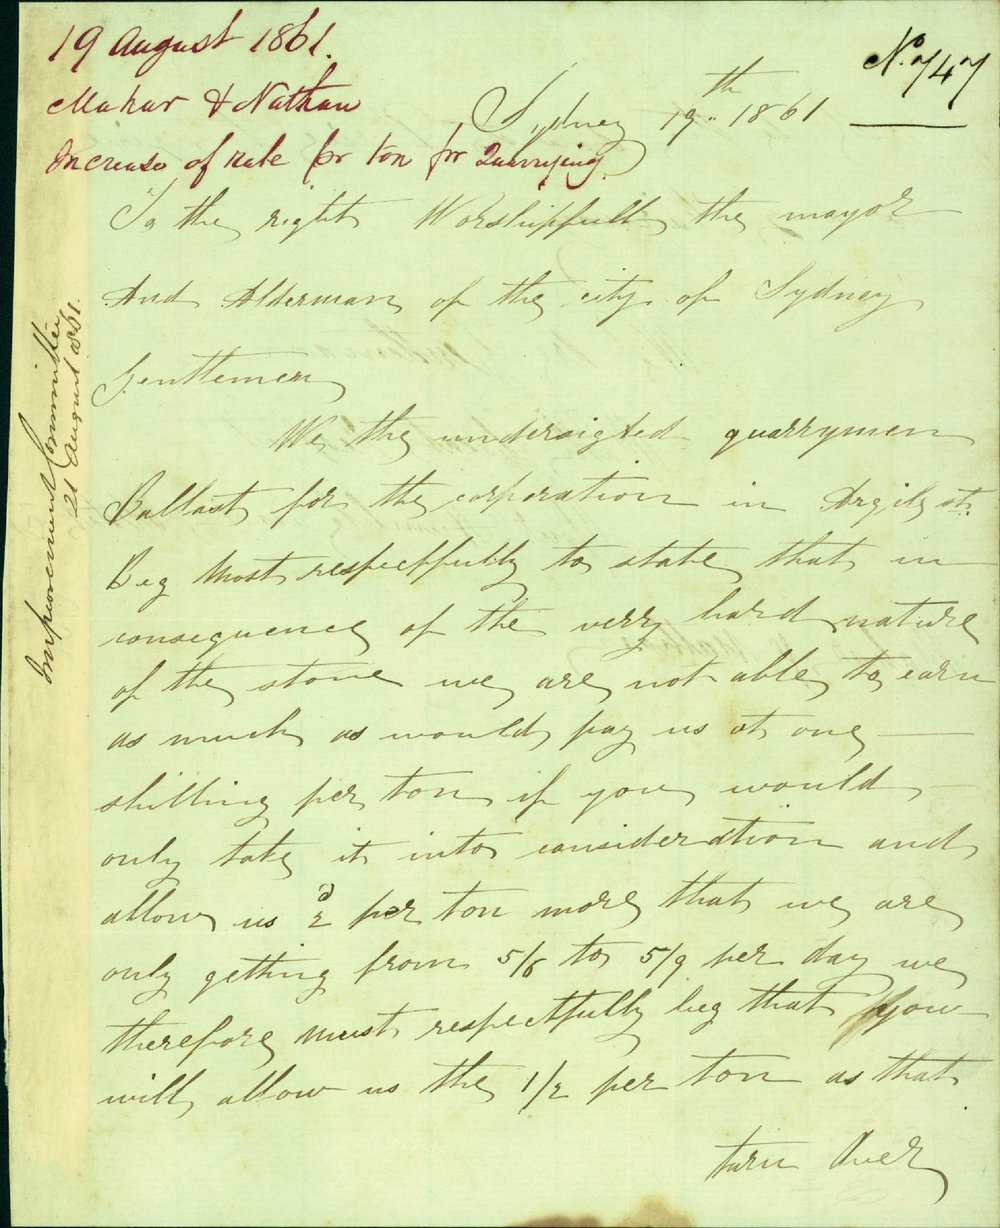 19 August 1861.
Mahar & Nathan
Increase of rate pr ton for Quarrying.
No. 747
Sydney 19th 1861
To the right Worshipfull the mayor
And Alderman of the city of Sydney
Gentlemen
We the undersigted quarrymen
Ballast for the corporation in Argile st.
Beg most respectfully to state that in
consequence of the verry hard nature
of the stone we are not able to earn
as much as would pay us at one
shilling per ton if you would
only take it into consideration and
allow us 2d per ton more that we are
only getting from 5/8 to 5/9 per day we
therefore must respectfully beg that you
will allow us the 1/2 per ton as that
turn Over
Improvement Committee
21 August 1861.